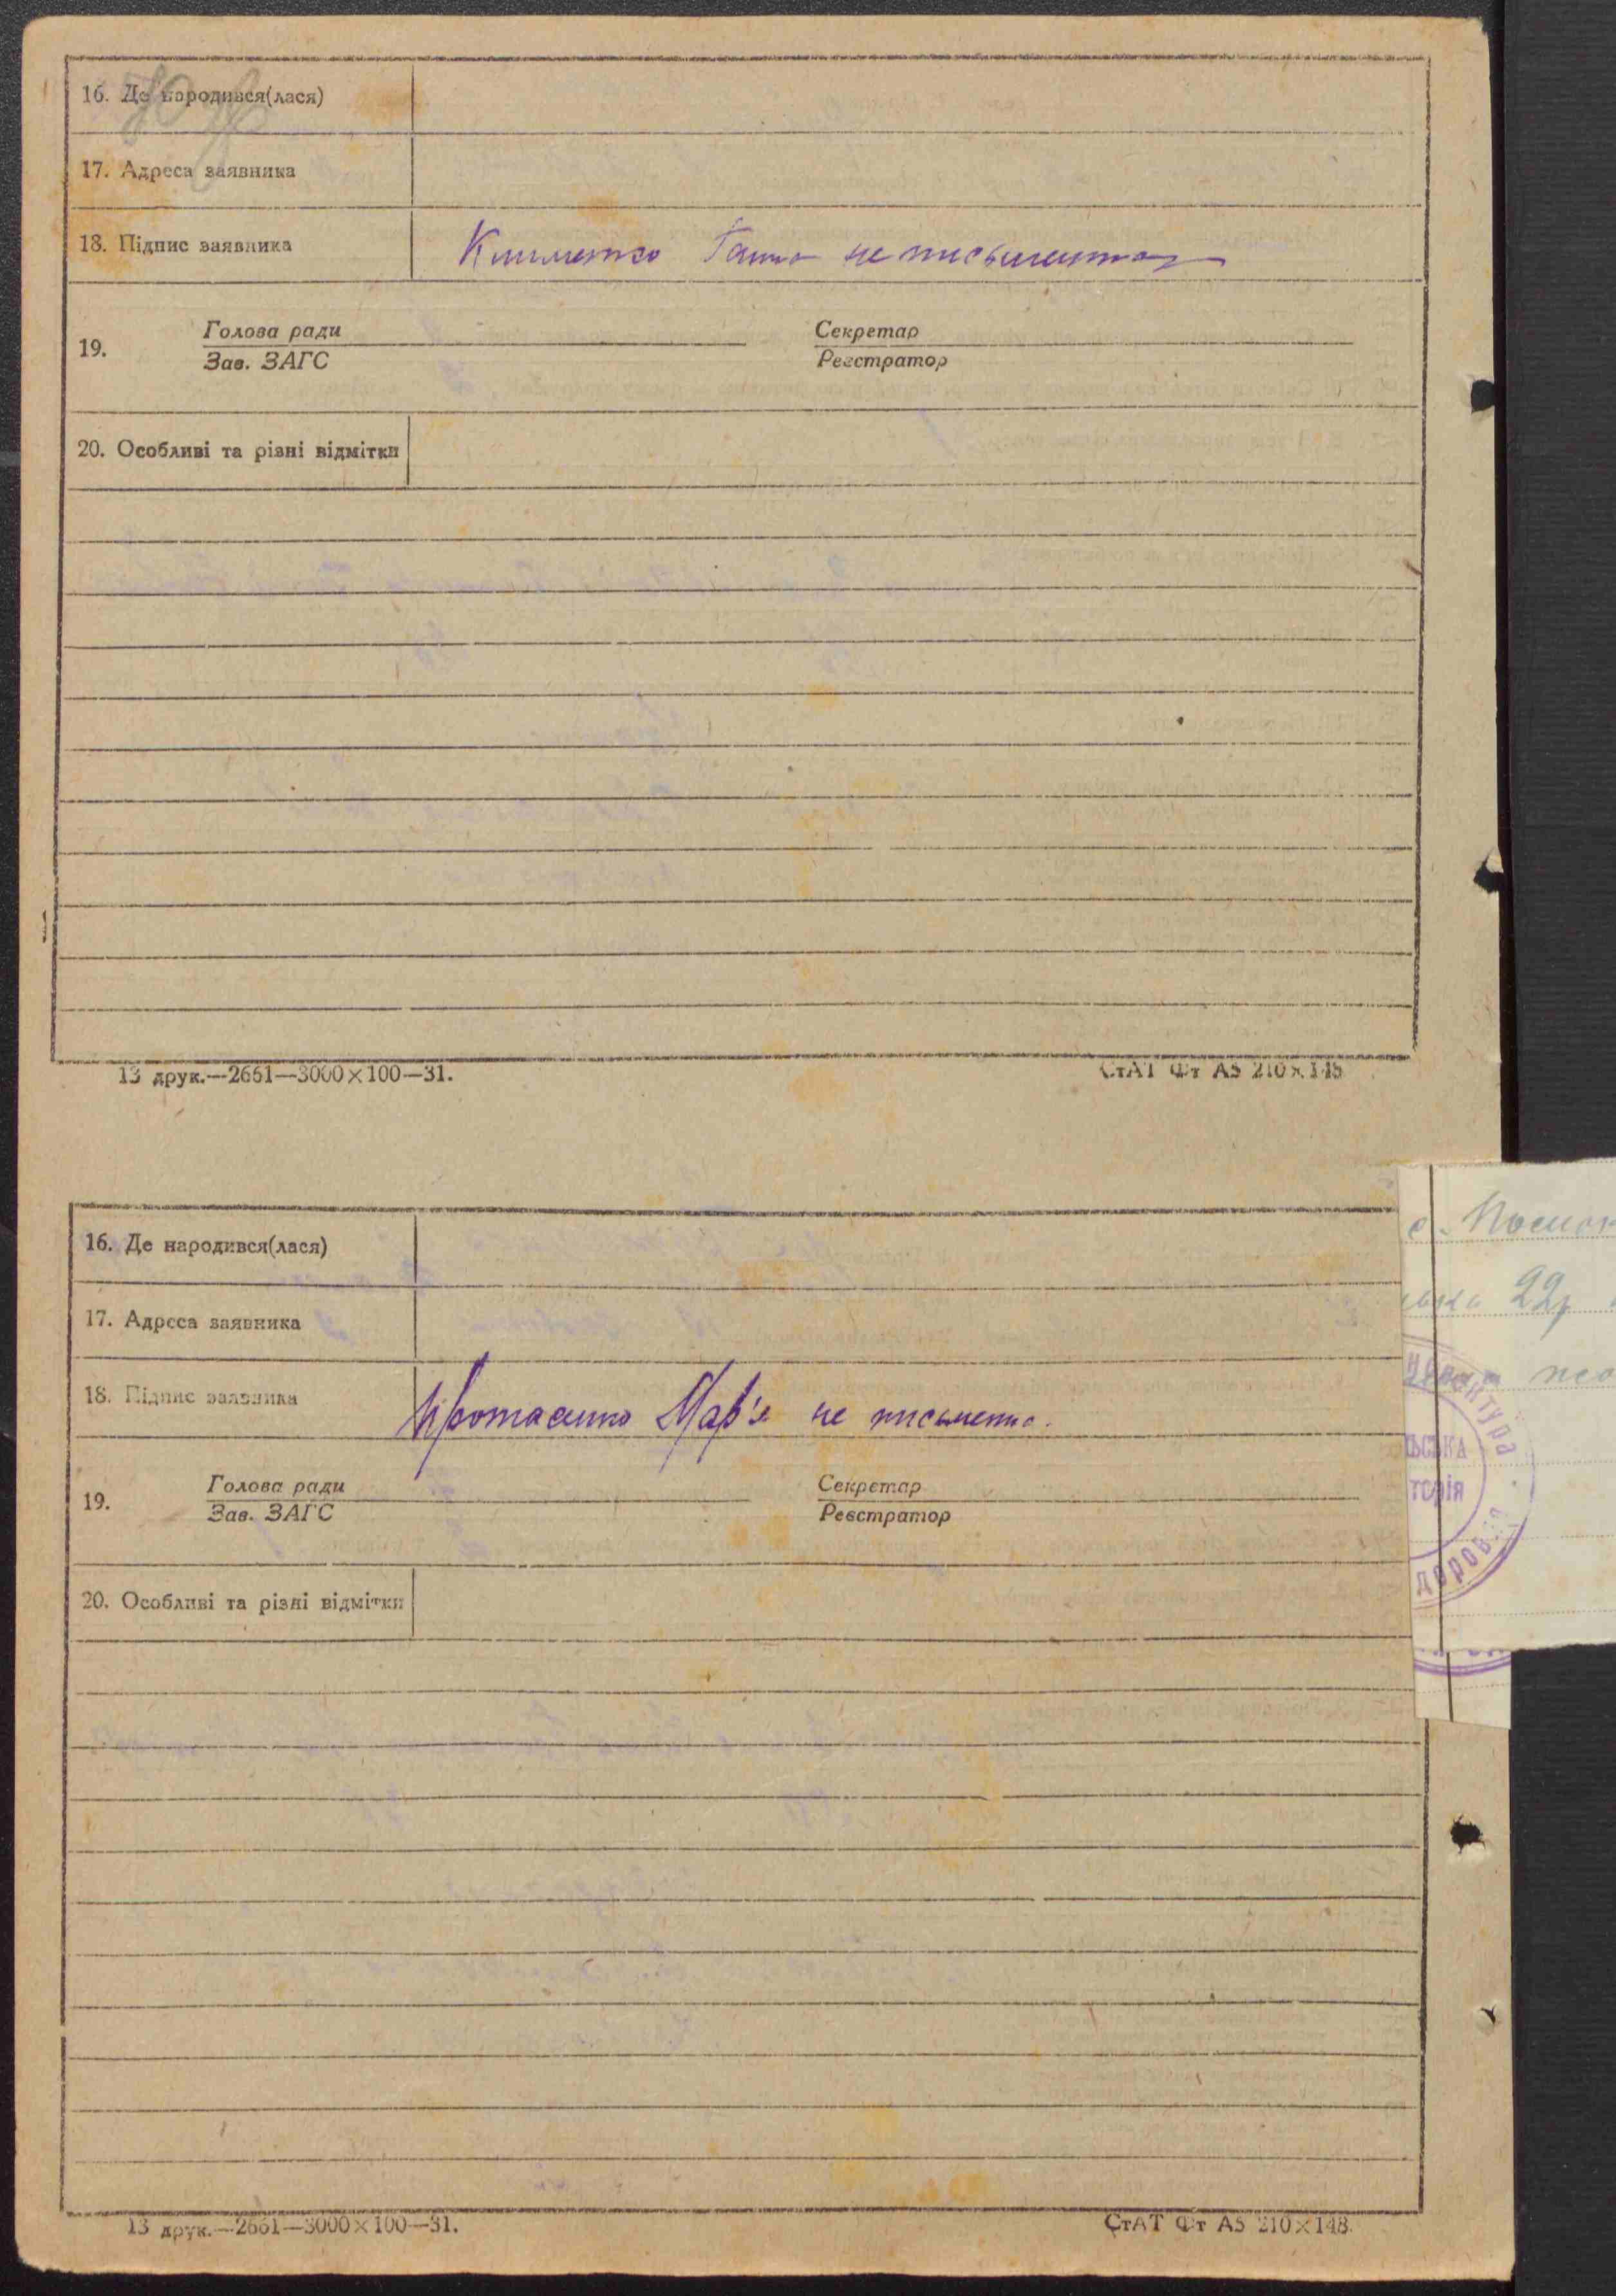 16. Де народився(лася)
17. Адреса заявника
18. Підпис заявника Клименко Ганна не письменна
19. Голова ради Секретар
Зав. ЗАГС Реєстратор
20. Особливі та різні відмітки
13 друк.—2661—3000×100—31. СтАТ Фт А5 210×148
16. Де народився(лася)
17. Адреса заявника
18. Підпис заявника Мар'я не письменна.
19. Голова ради Секретар
Зав. ЗАГС Реєстратор
20. Особливі та різні відмітки
13 друк.—2661—3000×100—31. СтАТ Фт А5 210×148.
с.
22р
ЬСЬКА
торія